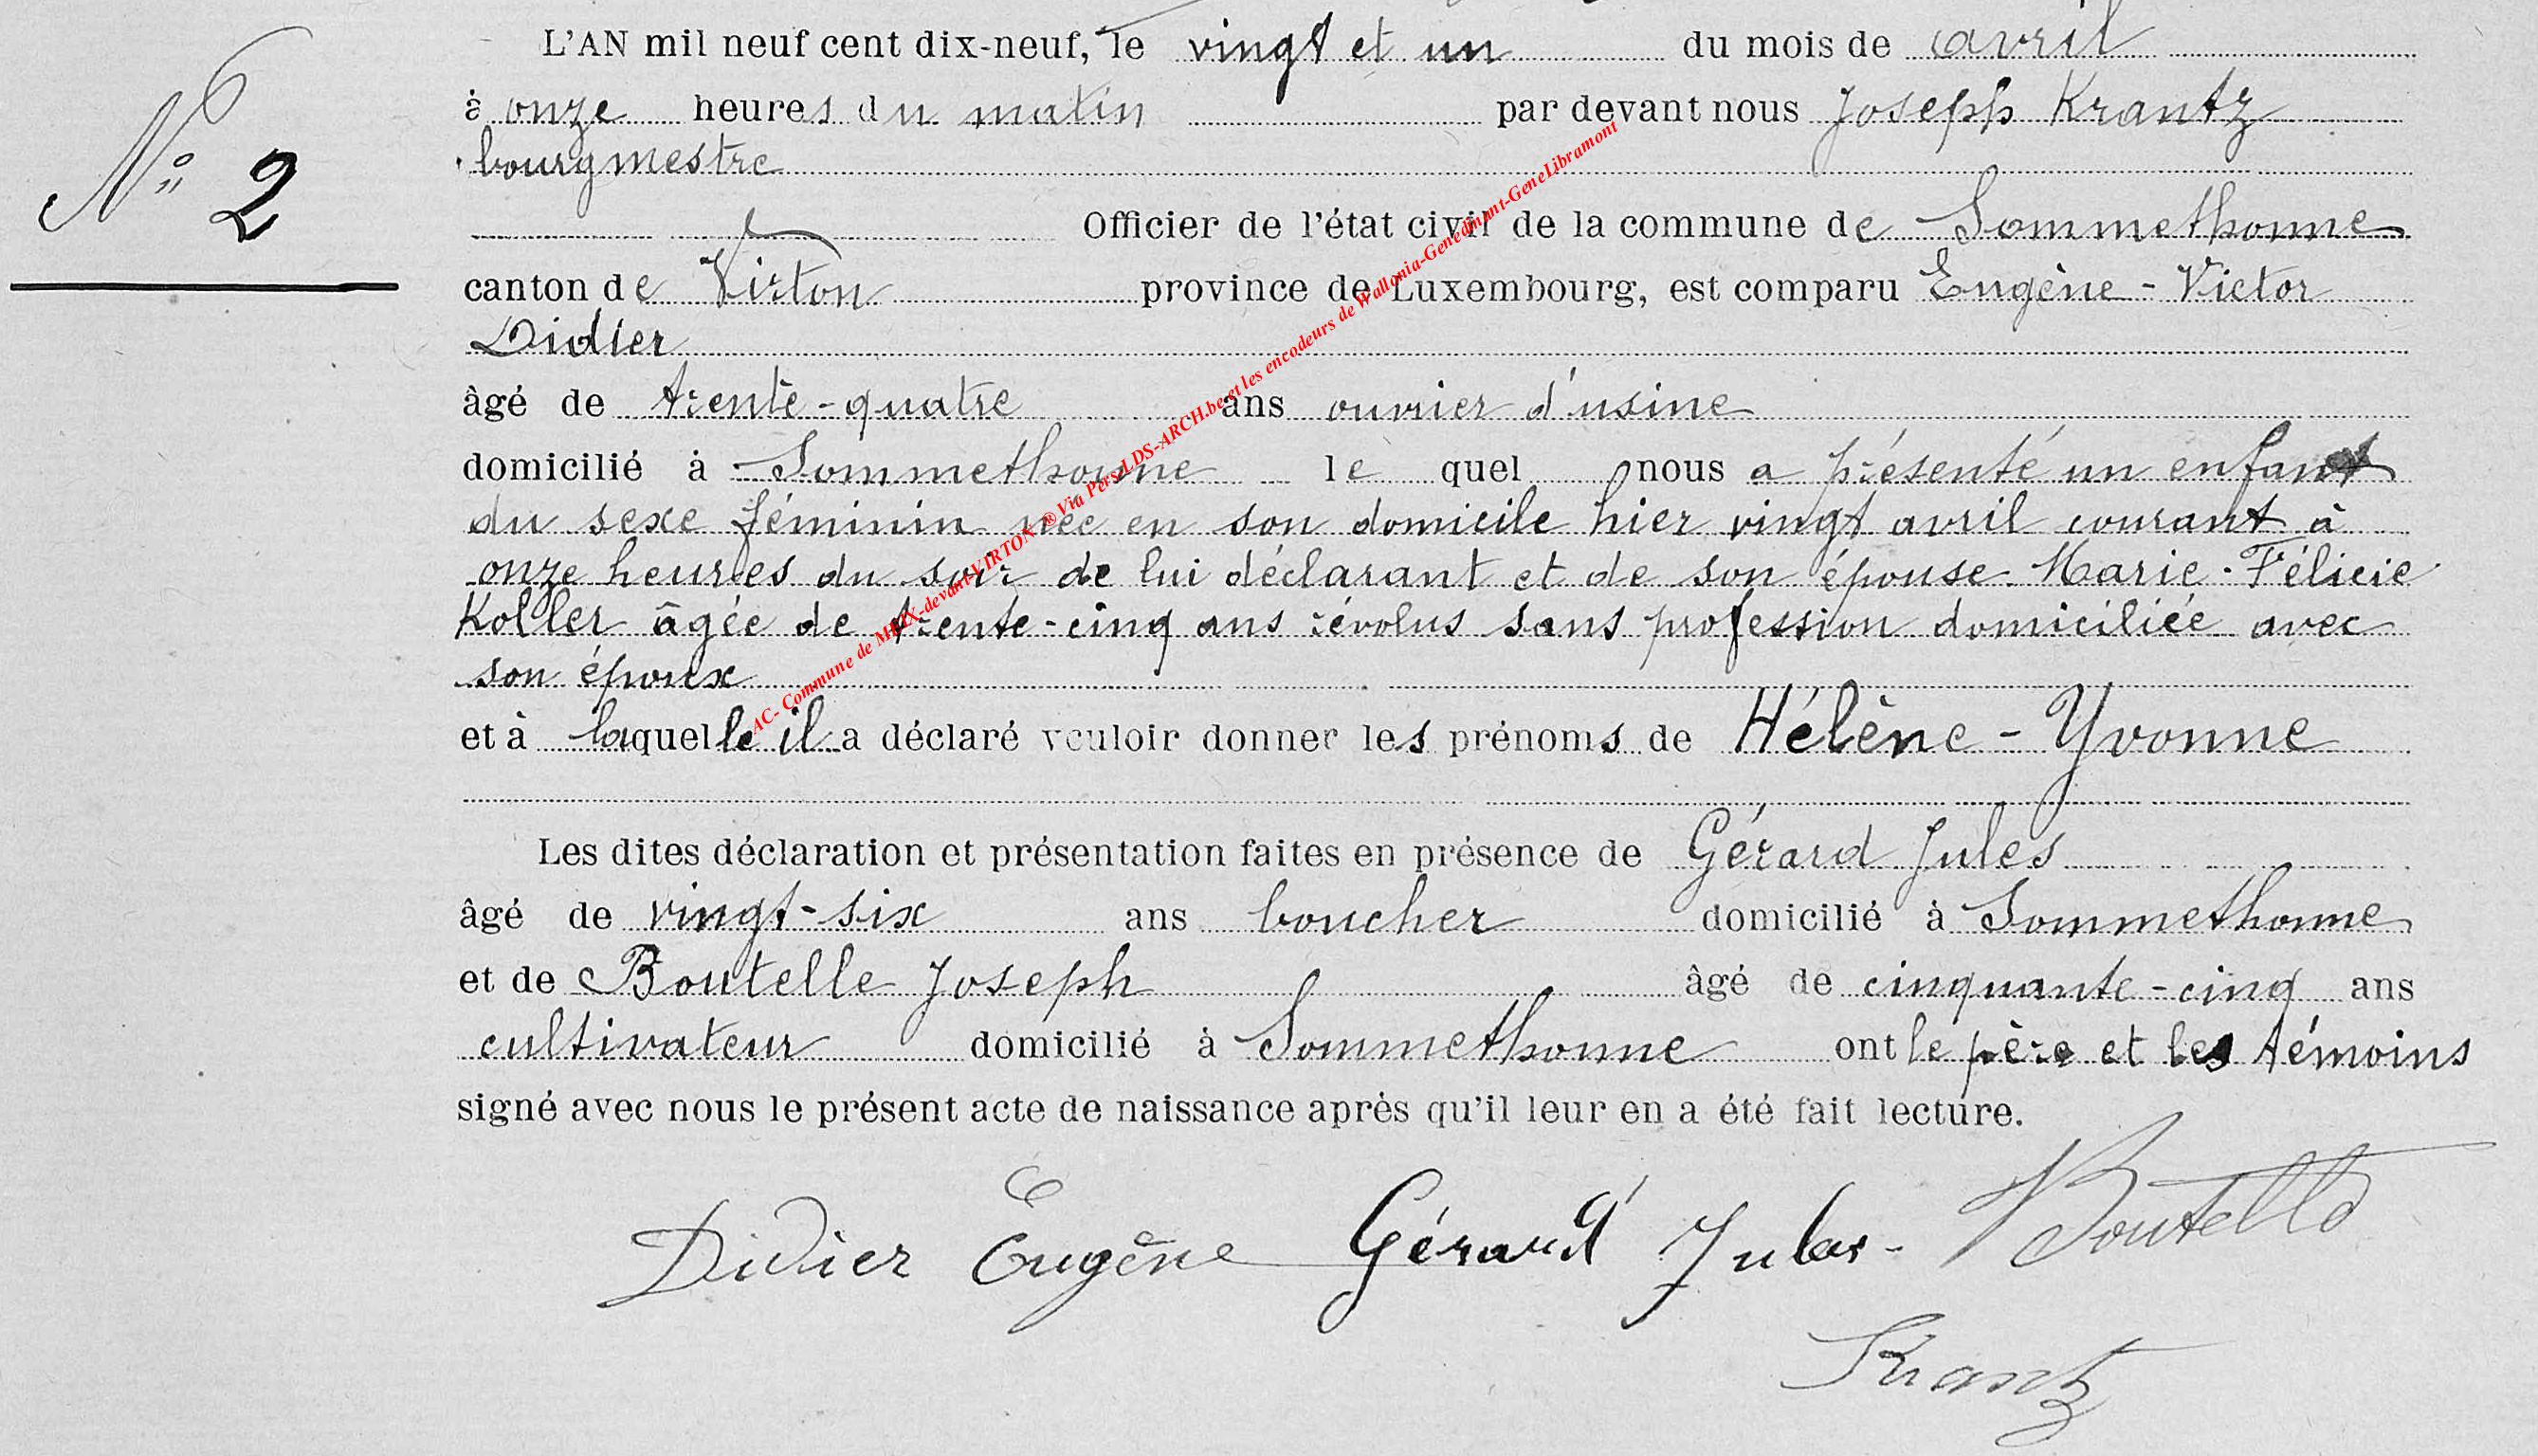 N° 2
L'AN mil neuf cent dix-neuf, le vingt et un du mois de avril
à onze heures du matin par devant nous Joseph Krantz
bourgmestre
Officier de l'état civil de la commune de Sommethonne
canton de Virton province de Luxembourg, est comparu Eugène-Victor
Didier
âgé de trente-quatre ans ouvrier d'usine
domicilié à Sommethonne le quel nous a présenté un enfant
du sexe féminin née en son domicile hier vingt avril courant à
onze heures du soir de lui déclarant et de son épouse Marie-Félicie
Koller âgée de trente-cinq ans révolus sans profession domiciliée avec
son époux
et à laquelle il a déclaré vouloir donner les prénoms de Hélène-Yvonne
Les dites déclaration et présentation faites en présence de Gérard Jules
âgé de vingt-six ans boucher domicilié à Sommethonne
et de Boutelle Joseph âgé de cinquante-cinq ans
cultivateur domicilié à Sommethonne ont le père et les témoins
signé avec nous le présent acte de naissance après qu'il leur en a été fait lecture.
Didier Eugène Gérard Jules - Boutelle
Krantz
AC- Commune de MEIX-devant-VIRTON ® Via Pers-LDS-ARCH.be et les encodeurs de Wallonia-Genedinant-GeneLibramont